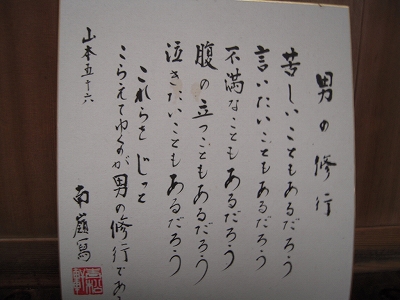 男の修行
苦しいこともあるだろう
言いたいこともあるだろう
不満なこともあるだろう
腹の立つこともあるだろう
泣きたいこともあるだろう
これらをじっと
こらえてゆくのが男の修行であ
山本五十六
南嶺寫